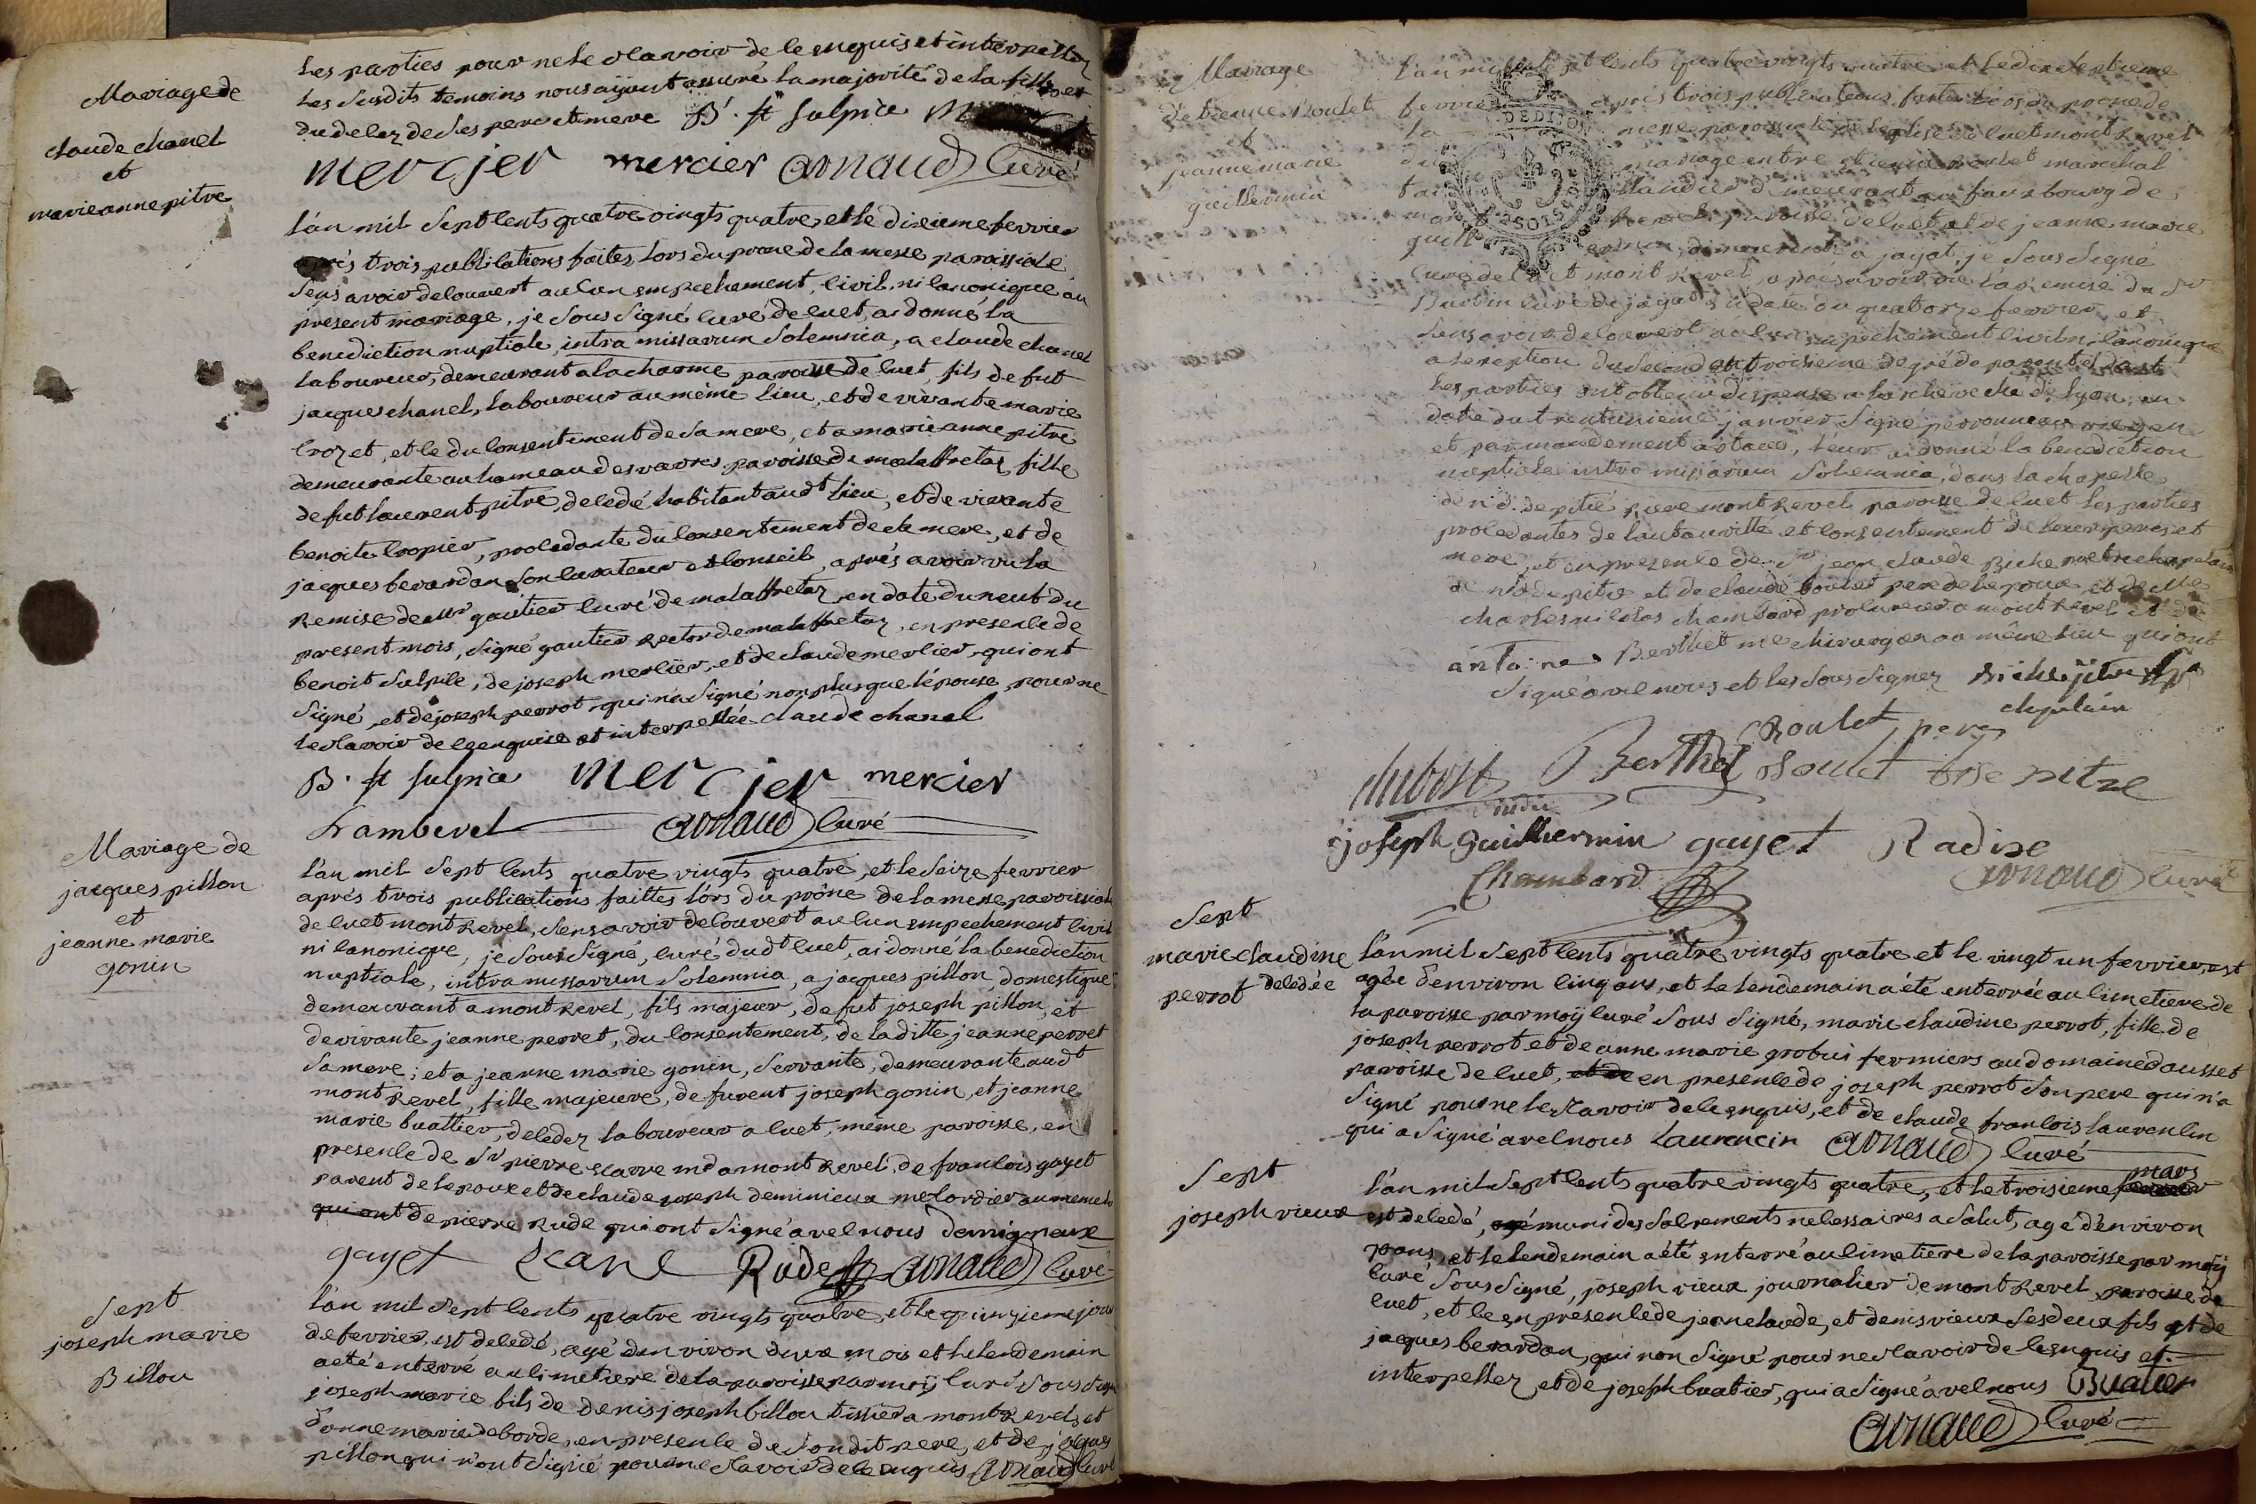 Les parties pour ne le scavoir de ce enquis et interpellez
Les susdits temoins nous aijant assuré la majorité de la fille et
du decez de ses pere et mere B. st sulpice
mercjer mercier arnaud Curé
Mariage de
claude chanel
et
marie anne pitre
L'an mil sept cents quatre vingts quatre, et le dixieme fevrier
aprés trois publications faites lors du prone de la messe paroissiale
sens avoir decouvert aucun empechement, civil, ni canonique au
present mariage, je sous signé curé de cuet, ai donné la
benediction nuptiale, intra missarum solemnia, a claude chanel
laboureur, demeurant a la charme paroisse de cuet, fils de fut
jacques chanel, laboureur au même lieu, et de vivante marie
crozet, et ce du consentement de sa mere, et a marie anne pitre
demeurante au hameau des vavres paroisse de malaffretaz, fille
de fut laurent pitre, decedé habitant audt lieu, et de vivante
benoite cropier, procedante du consentement de sa mere, et de
jacques berardan son curateur et conseil, aprés avoir vu la
Remise de mr gautier curé de malaffretaz en date du neuf du
present mois, signé gautier Rector de malaffretaz, en presence de
benoit sulpice, de joseph mercier, et de claude mercier, qui ont
signé, et de joseph perrot, qui n'a signé non plus que l'épouse, pour ne
le scavoir de ce enquise et interpellée claude chanel
B. st sulpice mercjer mercier
Lamberet arnaud Curé
Mariage de
jacques pillon
et
jeanne marie
gonin
L'an mil sept cents quatre vingts quatre, et le seize fevrier
aprés trois publications faittes lors du prône de la messe paroissiale
de cuet montRevel, sens avoir decouvert aucun empechement civil
ni canonique, je sous signé, curé dudt cuet, ai donné la benediction
nuptiale, intra missarum solemnia, a jacques pillon, domestique
demeurant a montRevel, fils majeur, de fut joseph pillon, et
de vivante jeanne perret, du consentement, de laditte jeanne perret
sa mere; et a jeanne marie gonin, servante, demeurante audt
montRevel, fille majeure, de furent joseph gonin, et jeanne
marie buattier, decedez laboureur a cuet, même paroisse, en
presence de Sr pierre scarre md a montRevel, de francois gayet
parent de lepoux et de claude joseph deminieux me cordier au meme lieu
qui ont de pierre Rude qui ont signé avec nous demigneux
gayet scarre Rude arnaud Curé
Sept
joseph marie
Billou
L'an mil sept cents quatre vingts quatre, et le quinzieme jour
de fevrier, est decedé, agé d'environ deux mois et le lendemain
a eté enterré au cimetiere de la paroisse par moy curé sous signé
joseph marie fils de denis joseph billou tissier a montRevel, et
d'anne marie deborde, en presence de son dit pere, et de jacques
pillon qui n'ont signé pour ne scavoir de ce enquis arnaud Curé
Mariage
d'etienne Boulet
et
jeanne marie
guillermin
L'an mil sept cents quatre vingts quatre, et le dix septieme
fevrier aprés trois publications faites lors du prone de
la messe paroissiale de l'eglise de cuet montRevel
du mariage entre etienne Boulet marechal
taillandier demeurant au fauxbourg de
montRevel paroisse de cuet et de jeanne marie
guillermin, demeurante a jayat, je sous signé
Curé de cuet montRevel, aprés avoir vu la Remise du Sr
curé de jayat en date du quatorze fevrier, et
sens avoir decouvert aucun empechement civil ni canonique
a l'exeption du second au troisieme degré de parenté dont
les parties ont obtenu dispense a l'archeveché de lyon, en
date du trenteunieme janvier
et par mandement, leur ai donné la benediction
nuptiale intra missarum solemnia, dans la chapelle
de n.d. de pitié Riere montRevel paroisse de cuet les parties
procedantes de l'authoritté et consentement de leurs peres et
mere, et en presence de Sr jean claude Riche pretre chapelain
de n.d. de pitié et de claude boulet pere de lepoux, et de me
charles nicolas chambard procureur a montRevel et de
antoine Berthet me chirurgien au même lieu qui ont
signé avec nous et les sous signez Riche ptre
chapelain
Boulet pere
dubost Berthet Boulet pitre
joseph Guillermin gayet Radix
Chambard arnaud Curé
Sept
marie claudine
perrot decedée
L'an mil sept cents quatre vingts quatre et le vingt un fevrier, est
agée d'environ cinq ans, et le lendemain a été enterrée au cimetiere de
la paroisse par moy curé sous signé, marie claudine perrot, fille de
joseph perrot et de anne marie probus fermiers au domaine dausset
paroisse de cuet, et de en presence de joseph perrot son pere qui n'a
signé pour ne le scavoir de ce enquis, et de claude francois laurencin
qui a signé avec nous Laurencin arnaud Curé
Sept
joseph vieux
L'an mil sept cents quatre vingts quatre, et le troisieme mars
est decedé, muni des sacrements necessaires a salut, agé d'environ
70 ans, et le lendemain a été enterré au cimetiere de la paroisse par moy
curé sous signé, joseph vieux journalier de montRevel paroisse de
cuet, et ce en presence de jean claude, et denis vieux ses deux fils et de
jacques berardan, qui non signé pour ne scavoir de ce enquis et
interpellez, et de joseph buatier, qui a signé avec nous Buatier
arnaud Curé